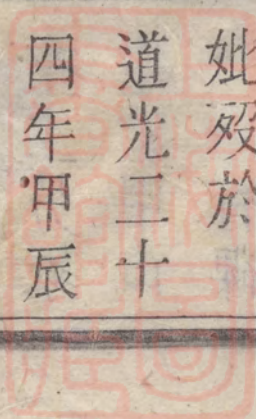 妣歿於
道光二十
四年甲辰